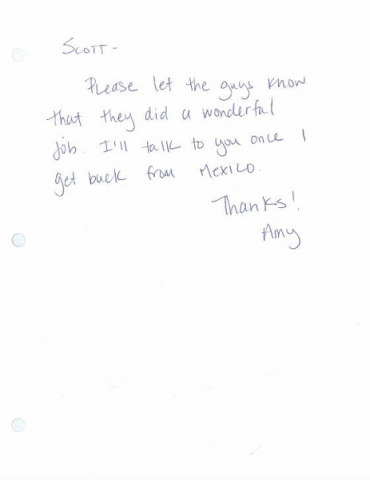 Scott -
Please let the guys know
that they did a wonderful
job. I'll talk to you once I
get back from Mexico.
Thanks!
Amy